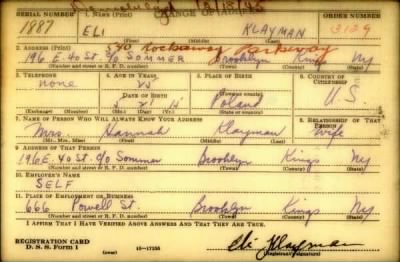 CHANGE OF ADDRESS 12/18/45
SERIAL NUMBER 1. NAME (Print) ORDER NUMBER
1887 ELI KLAYMAN 3129
(First) (Middle) (Last)
2. ADDRESS (Print) 590 Rockaway Parkway
196 E. 40 St. c/o SOMMER Brooklyn Kings NY
(Number and street or R. F. D. number) (Town) (County) (State)
3. TELEPHONE 4. AGE IN YEARS 5. PLACE OF BIRTH 6. COUNTRY OF CITIZENSHIP
none
DATE OF BIRTH (Town or county)
Poland U.S.
(Exchange) (Number) (Mo.) (Day) (Yr.) (State or country)
7. NAME OF PERSON WHO WILL ALWAYS KNOW YOUR ADDRESS 8. RELATIONSHIP OF THAT PERSON
Mrs. Hannah Klayman Wife
(Mr., Mrs., Miss) (First) (Middle) (Last)
9. ADDRESS OF THAT PERSON
196 E. 40 St. c/o Sommer Brooklyn Kings NY
(Number and street or R. F. D. number) (Town) (County) (State)
10. EMPLOYER'S NAME
SELF
11. PLACE OF EMPLOYMENT OR BUSINESS
666 Powell St. Brooklyn Kings NY
(Number and street or R. F. D. number) (Town) (County) (State)
I AFFIRM THAT I HAVE VERIFIED ABOVE ANSWERS AND THAT THEY ARE TRUE.
REGISTRATION CARD
D. S. S. Form 1 (over) 16-17105 Eli Klayman
(Registrant's signature)